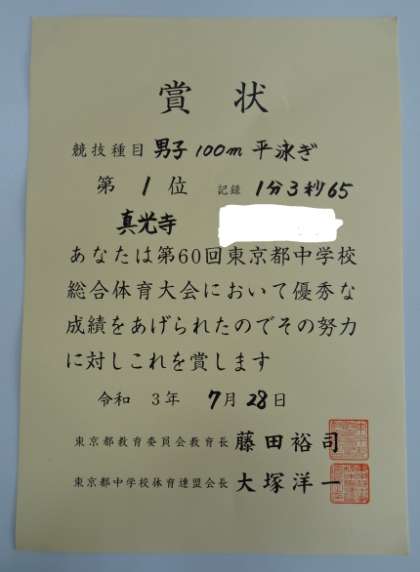 賞状
競技種目 男子 100m 平泳ぎ
第 1 位 記録 1分3秒65
真光寺
あなたは第60回東京都中学校
総合体育大会において優秀な
成績をあげられたのでその努力
に対しこれを賞します
令和 3年 7月 28日
東京都教育委員会教育長 藤田裕司
東京都中学校体育連盟会長 大塚洋一